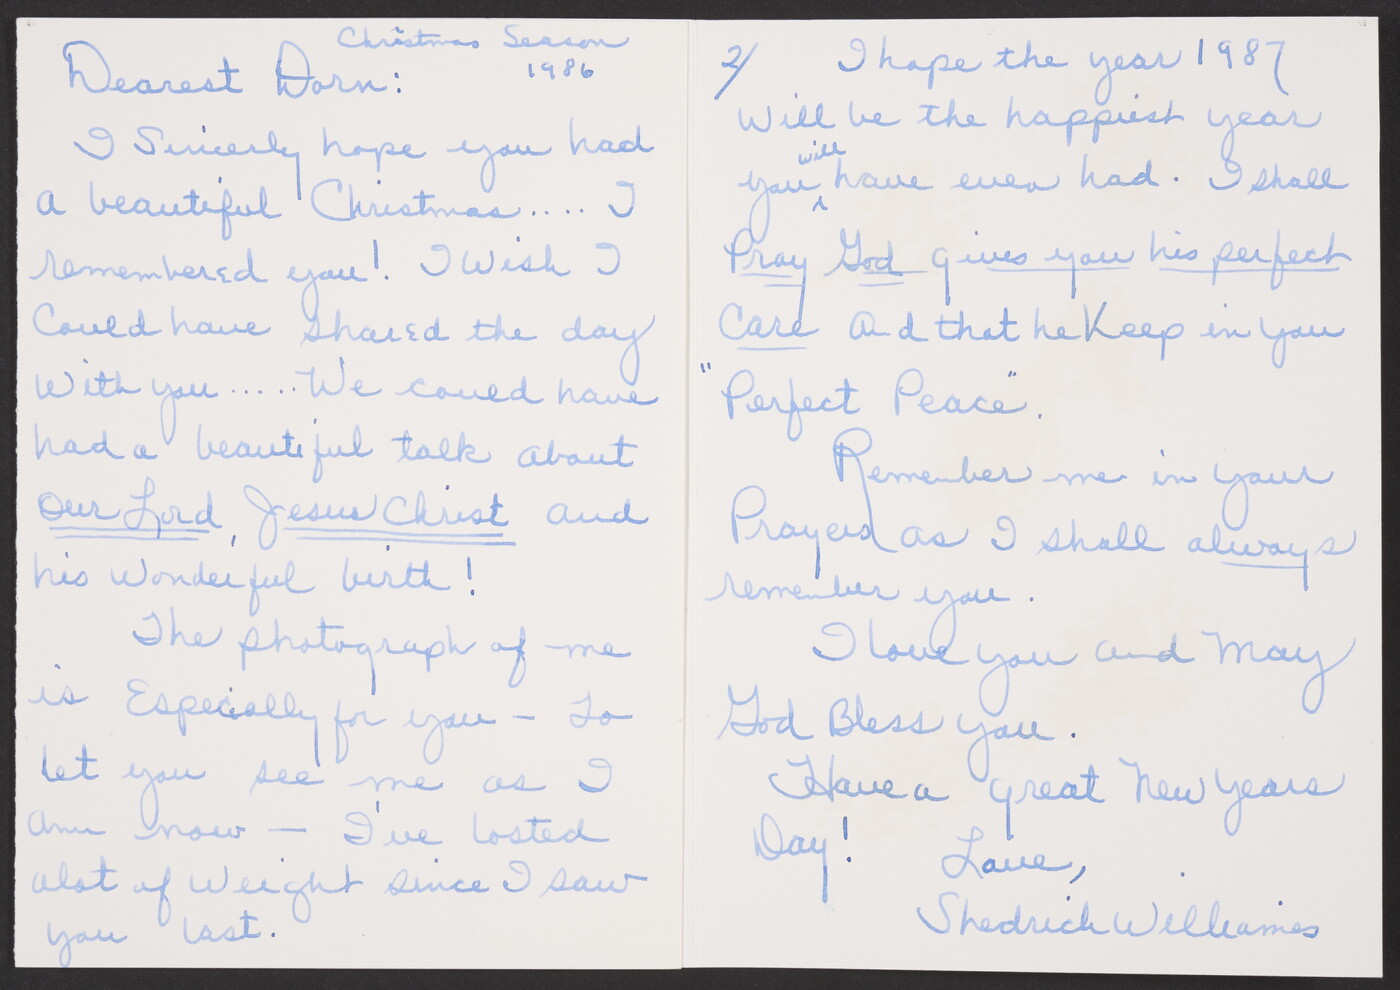 Christmas Season
1986
Dearest Dorn:
I Sincerly hope you had
a beautiful Christmas..... I
remembered you!. I Wish I
Could have shared the day
With you...... We could have
had a beautiful talk about
Our Lord, Jesus Christ and
his wonderful birth!
The photograph of me
is Especially for you - To
let you see me as I
am now - I've losted
alot of weight since I saw
you last.
2/ I hope the year 1987
Will be the happiest year
you will have ever had. I shall
Pray God gives you his perfect
Care And that he Keep in you
"Perfect Peace".
Remember me in your
Prayers as I shall always
remember you.
I love you and May
God Bless you.
Have a great New years
Day!
Love,
Shedrich Williames